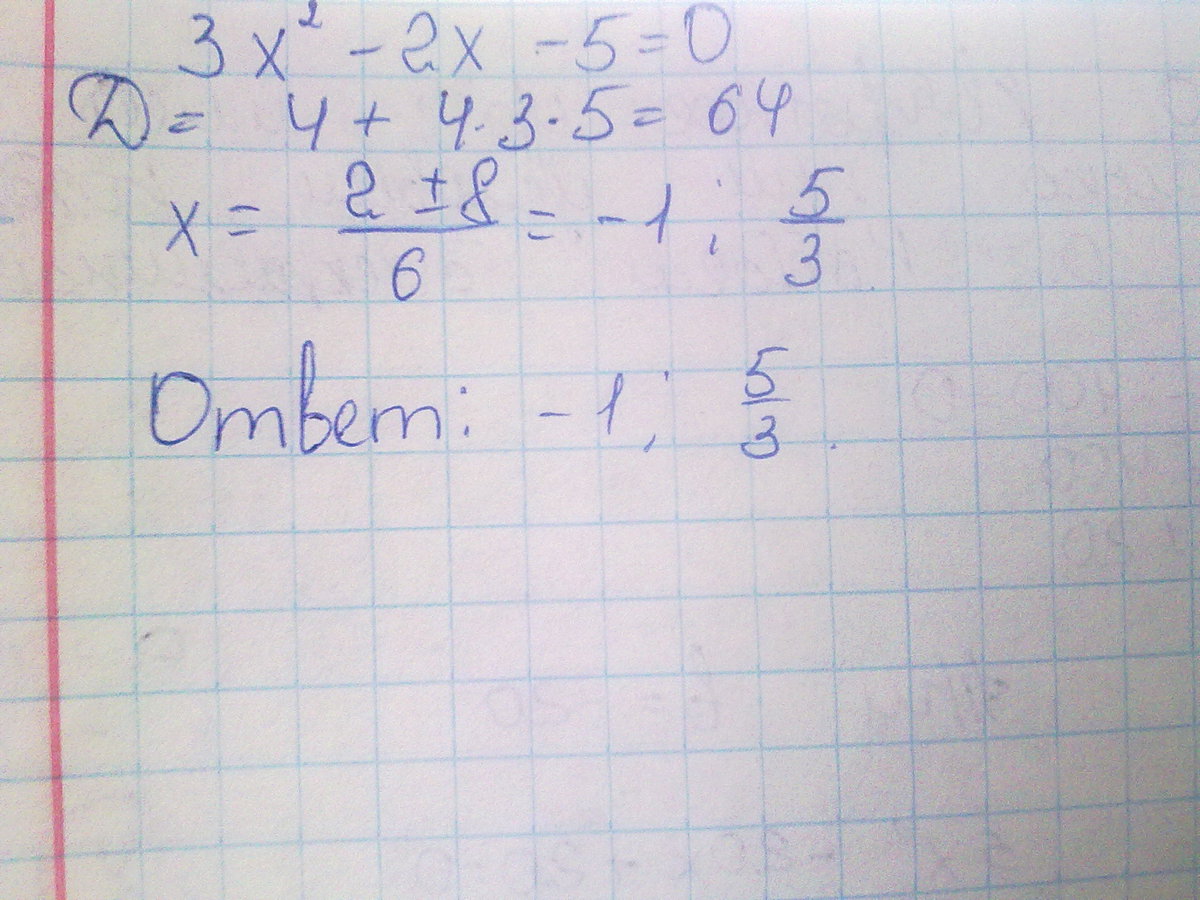 3x² - 2x - 5 = 0
D = 4 + 4·3·5 = 64
x = (2 ± 8)/6 = -1; 5/3
Ответ: -1; 5/3.